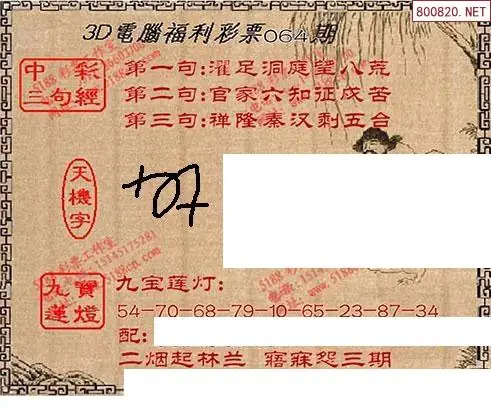 800820.NET
3D電腦福利彩票064期
中彩
三句經
第一句:濯足洞庭望八荒
第二句:官家六知征戍苦
第三句:禅隆秦汉剩五台
天機字
九寳
蓮燈
九宝莲灯:
54-70-68-79-10-65-23-87-34
配:
二烟起林兰 寤寐怨三期